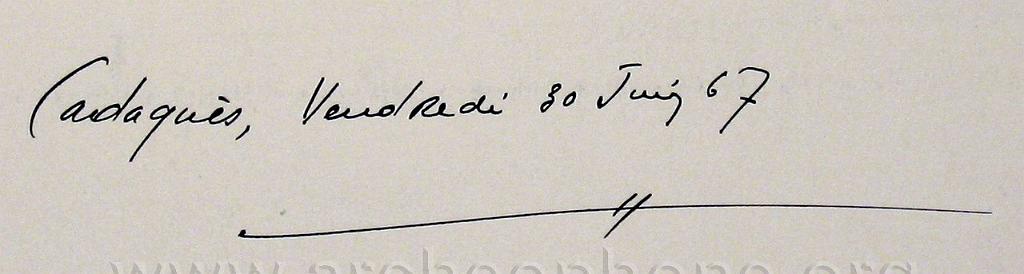 Cadaquès, Vendredi 30 Juin 67
www.archeophone.org